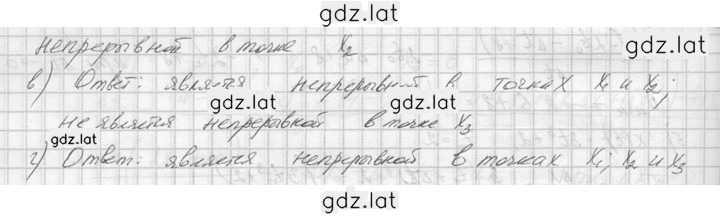 gdz.lat
непрерывной в точке x₂
gdz.lat
в) Ответ: является непрерывной в точках x₁ и x₂;
gdz.lat gdz.lat
не является непрерывной в точке x₃
г) Ответ: является непрерывной в точках x₁; x₂ и x₃
gdz.lat
gdz.lat